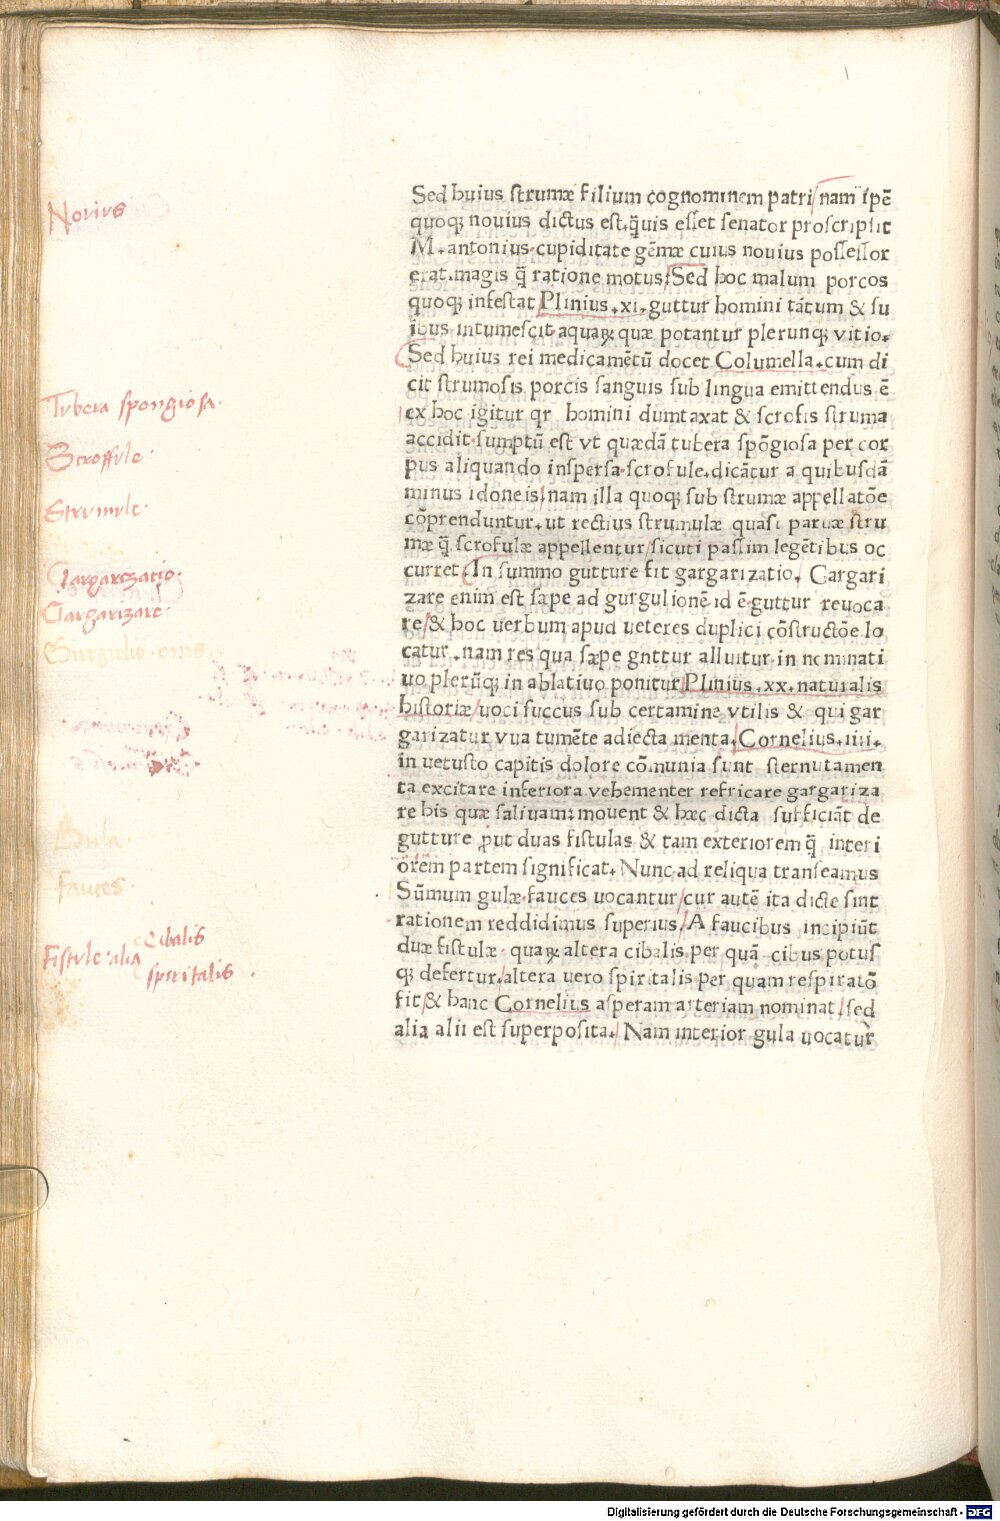 Novius
Tubera spongiosa.
Scroffule.
Strumule.
Gargarizatio.
Gargarizare.
Gurgulio. onis
Gula
fauces.
Fistule. alia
Cibalis
spiritalis
Sed huius strumæ filium cognominem patri/nam ip̄e
quoqꝫ nouius dictus est.q̄uis esset senator proscripsit
M.antonius.cupiditate gēmæ cuius nouius possessor
erat.magis q̄ ratione motus/Sed hoc malum porcos
quoqꝫ infestat Plinius.xi.guttur homini tātum & su
ibus intumescit aquaꝝ quæ potantur plerunqꝫ vitio.
Sed huius rei medicamētū docet Columella.cum di
cit strumosis porcis sanguis sub lingua emittendus ē
ex hoc igitur qr homini dumtaxat & scrofis struma
accidit.sumptū est vt quædā tubera spōgiosa per cor
pus aliquando inspersa.scrofule.dicātur a quibusdā
minus idoneis/nam illa quoqꝫ sub strumæ appellatōe
cōprenduntur.ut rectius strumulæ quasi paruæ stru
mæ q̄ scrofulæ appellentur/sicuti passim legētibus oc
curret.In summo gutture fit gargarizatio. Gargari
zare enim est sape ad gurgulionē id ē.guttur reuoca
re/& hoc uerbum apud ueteres duplici cōstructōe lo
catur.nam res qua sæpe gnttur alluitur in nominati
uo plerūqꝫ in ablatiuo ponitur/Plinius.xx.naturalis
historiæ/uoci succus sub certamine vtilis & qui gar
garizatur vua tumēte adiecta menta.Cornelius.iiii.
in uetusto capitis dolore cōmunia sunt sternutamen
ta excitare inferiora vehementer refricare gargariza
re his quæ saliuam:mouent & hæc dicta sufficiāt de
gutture ꝓut duas fistulas & tam exteriorem q̄ interi
orem partem significat.Nunc ad reliqua transeamus
Sūmum gulæ.fauces uocantur/cur autē ita dicte sint
rationem reddidimus superius/A faucibus incipiūt
duæ fistulæ.quaꝝ altera cibalis per quā cibus potus
qꝫ defertur/altera uero spiritalis per quam respiratō
fit/& hanc Cornelius asperam arteriam nominat/sed
alia alii est superposita.Nam interior gula uocatur
Digitalisierung gefördert durch die Deutsche Forschungsgemeinschaft - DFG